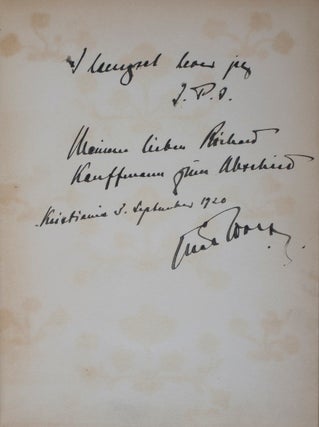 I længsel lever jeg
J. P. J.
Meinem lieben Richard
Kauffmann zum Abschied
Kristiania 3. September 1920